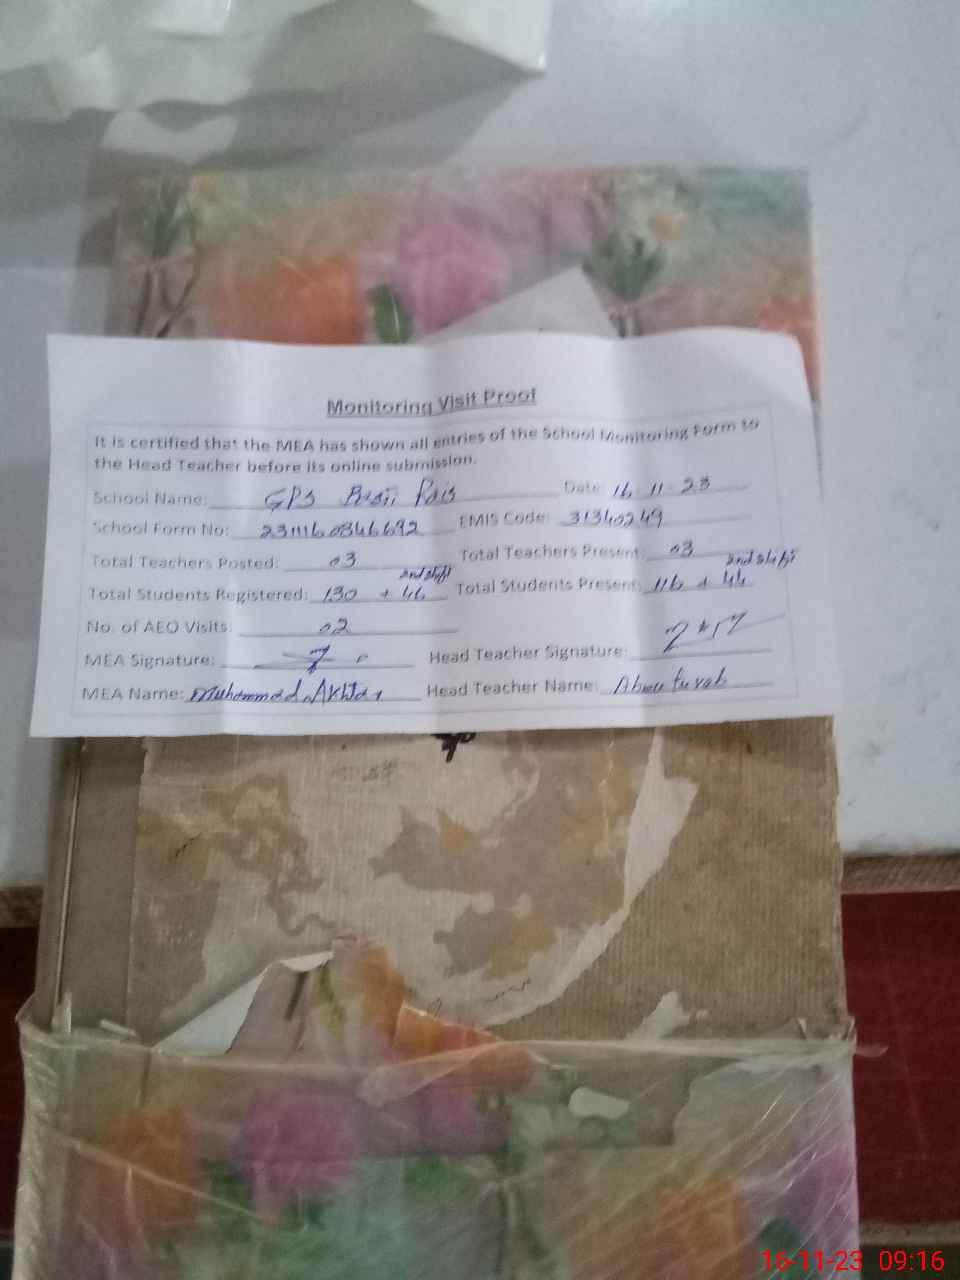 Monitoring Visit Proof
It is certified that the MEA has shown all entries of the School Monitoring Form to
the Head Teacher before its online submission.
School Name: GPS Rais Date: 16-11-23
School Form No: EMIS Code: 31340249
Total Teachers Posted: 03 Total Teachers Present: 03
Total Students Registered: 130 + 46 Total Students Present: 116 + 44
No. of AEO Visits: 02
MEA Signature: Head Teacher Signature:
MEA Name: Muhammad Akhtar Head Teacher Name:
16-11-23 09:16